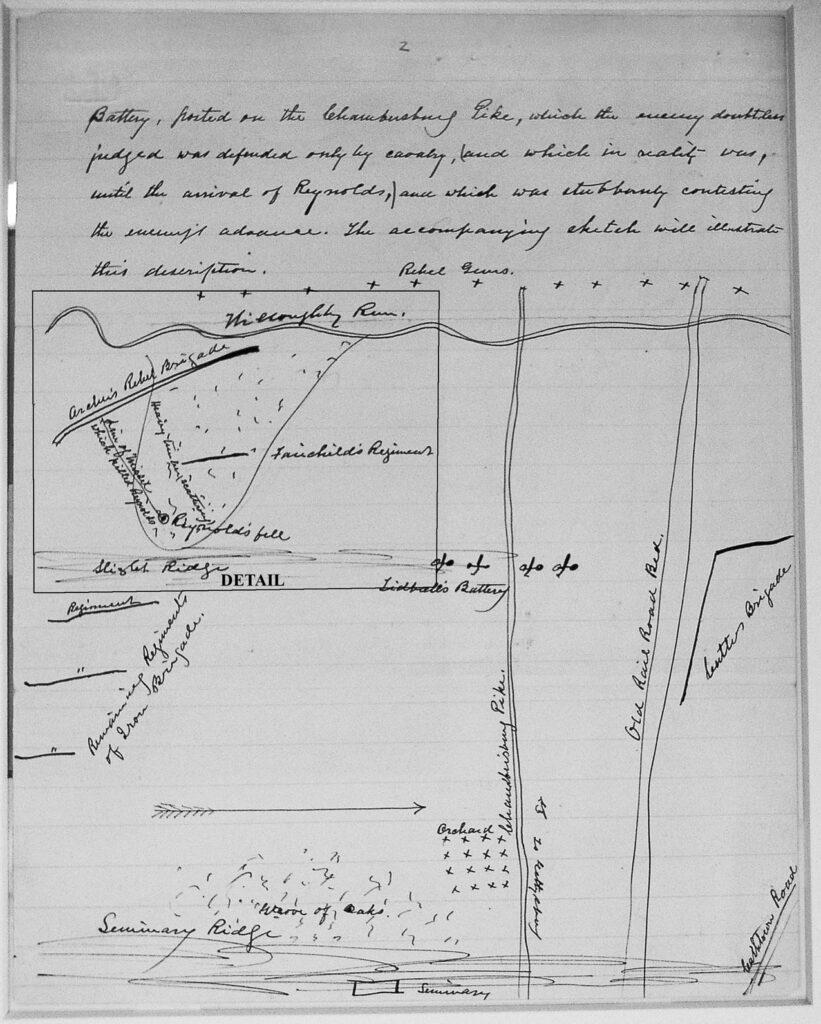 2
Battery, posted on the Chambersburg Pike, which the enemy doubtless
judged was defended only by cavalry, (and which in reality was,
until the arrival of Reynolds,) and which was stubbornly contesting
the enemy's advance. The accompanying sketch will illustrate
this description.
Rebel Guns.
Willoughby Run.
Archer's Rebel Brigade
Line of
which killed Reynolds
Heavy timber scattering
Fairchild's Regiment
Reynolds fell
Slight Ridge
DETAIL
Tidball's Battery
Regiment
"
"
Remaining Regiments
of Iron Brigade.
Cutler's Brigade
Old Rail Road Bed.
Chambersburg Pike.
to Gettysburg
Orchard
Grove of Oaks.
Seminary Ridge
Seminary
Road